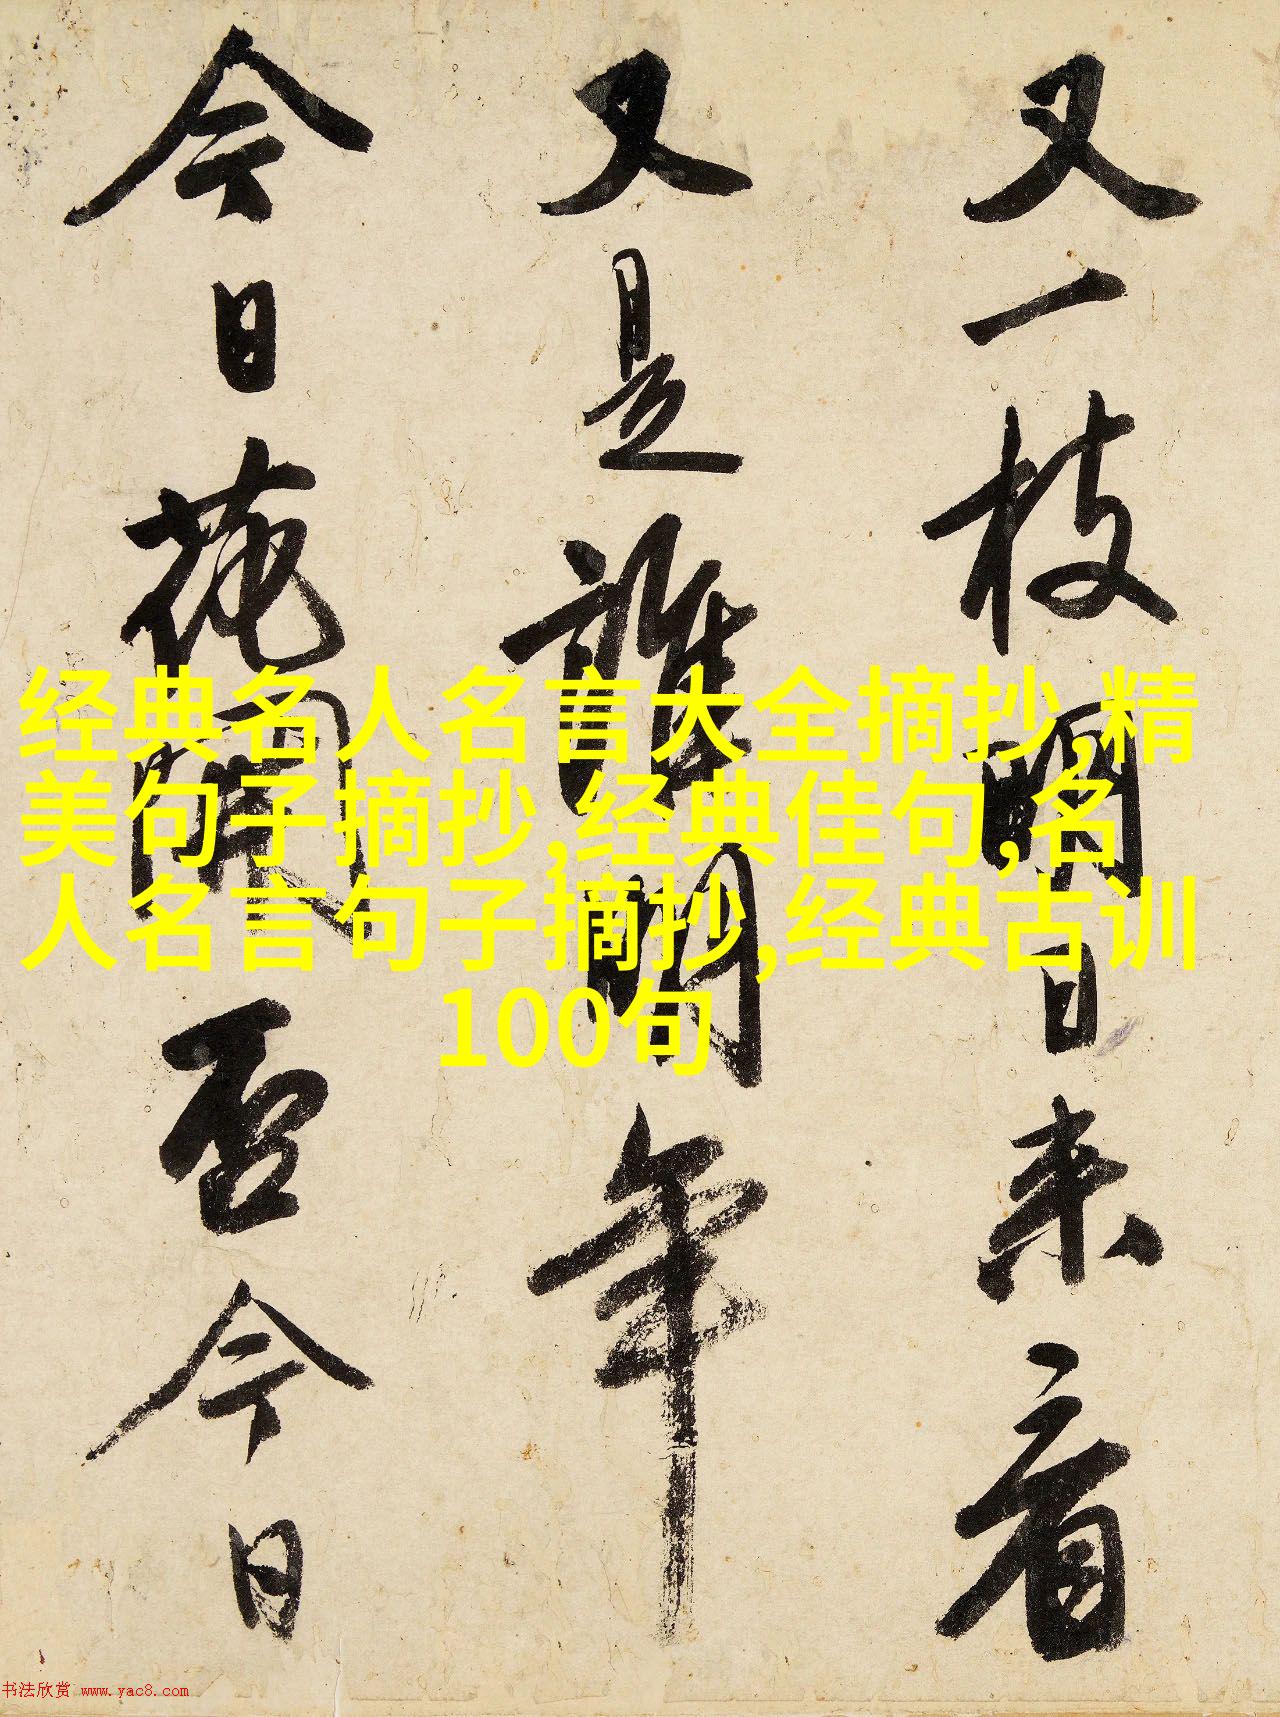 又一枝明日来看
又是誰明年
今日花開否今日
经典名人名言大全摘抄,精
美句子摘抄,经典佳句,名
人名言句子摘抄,经典古训
100句
书法欣赏 www.yac8.com